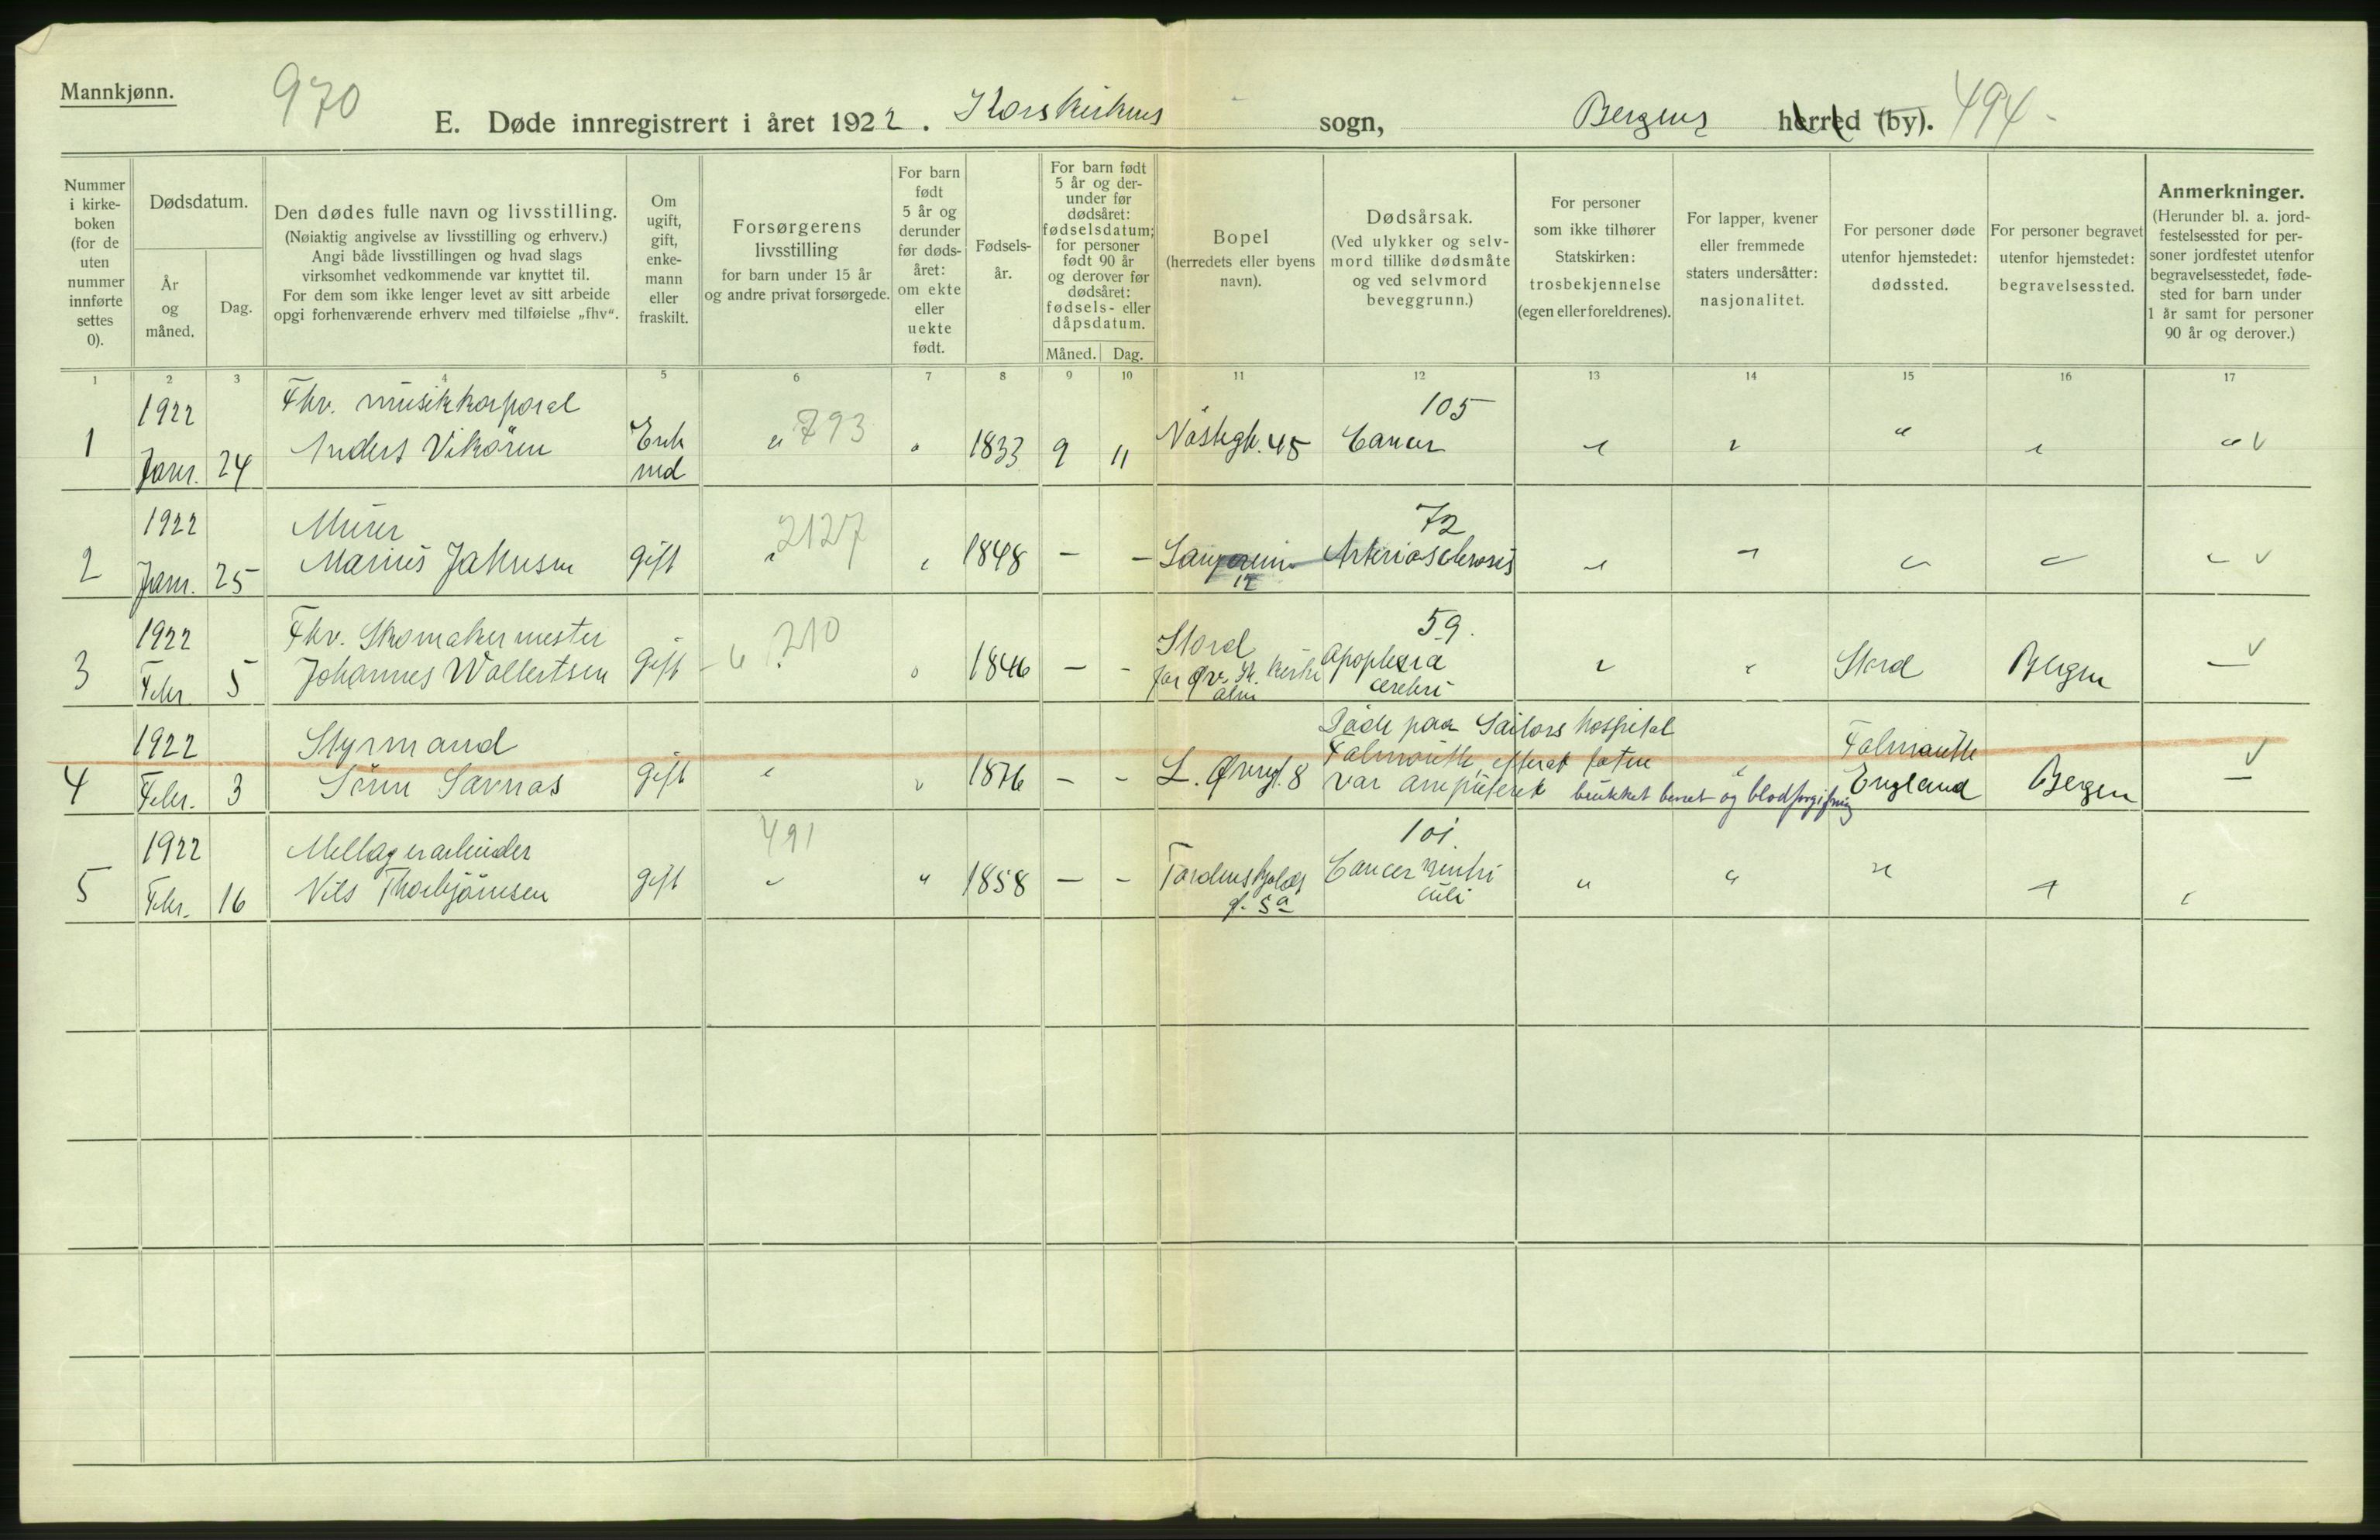 Mannkjønn.
970
E. Døde innregistrert i året 1922. Korskirkens sogn, Bergens herred (by). 494-
Nummer i kirke- boken (for de uten nummer innførte settes 0).
Dødsdatum.
År og måned.
Dag.
Den dødes fulle navn og livsstilling.
(Nøiaktig angivelse av livsstilling og erhverv.)
Angi både livsstillingen og hvad slags
virksomhet vedkommende var knyttet til.
For dem som ikke lenger levet av sitt arbeide
opgi forhenværende erhverv med tilføielse „fhv“.
Om ugift, gift, enke- mann eller fraskilt.
Forsørgerens livsstilling
for barn under 15 år
og andre privat forsørgede.
For barn født 5 år og derunder før døds- året: om ekte eller uekte født.
Fødsels- år.
For barn født 5 år og der- under før dødsåret: fødselsdatum; for personer født 90 år og derover før dødsåret: fødsels- eller dåpsdatum.
Måned. Dag.
Bopel
(herredets eller byens navn).
Dødsårsak.
(Ved ulykker og selv- mord tillike dødsmåte og ved selvmord beveggrunn.)
For personer som ikke tilhører Statskirken: trosbekjennelse (egen eller foreldrenes).
For lapper, kvener eller fremmede staters undersåtter: nasjonalitet.
For personer døde utenfor hjemstedet: dødssted.
For personer begravet utenfor hjemstedet: begravelsessted.
Anmerkninger.
(Herunder bl. a. jord- festelsessted for per- soner jordfestet utenfor begravelsesstedet, føde- sted for barn under 1 år samt for personer 90 år og derover.)
1 2 3 4 5 6 7 8 9 10 11 12 13 14 15 16 17
1 1922 Janr. 24 Fhv. musikkorporal Anders Vikören Enk md " 793 " 1833 9 11 Nöstegt. 45 105 Cancer " " " " " V
2 1922 Janr. 25 Murer Marius Jakobsen gift " 2127 " 1848 - - 12 72 Arteriosclerosis " " " " " V
3 1922 Febr. 5 Fhv. Skomakermester Johannes Wallertsen gift - " 210 " 1846 - - Stord før Øv. Kr. kirke alm 59. Apoplexia cerebri " " Stord Bergen - V
4 1922 Febr. 3 Styrmand Sörin Savnas gift " " 1876 - - L. Øvregt. 8 Döde paa Sailors hospital Falmouth, efterat foten var amputeret brukket benet og blodforgiftning " Falmouth England Bergen - V
5 1922 Febr. 16 Mellagerarbeider Nils Thorbjörnsen gift 491 " " 1858 - - Tordenskjolds g. 5a 101 Cancer ventri culi " " " " "